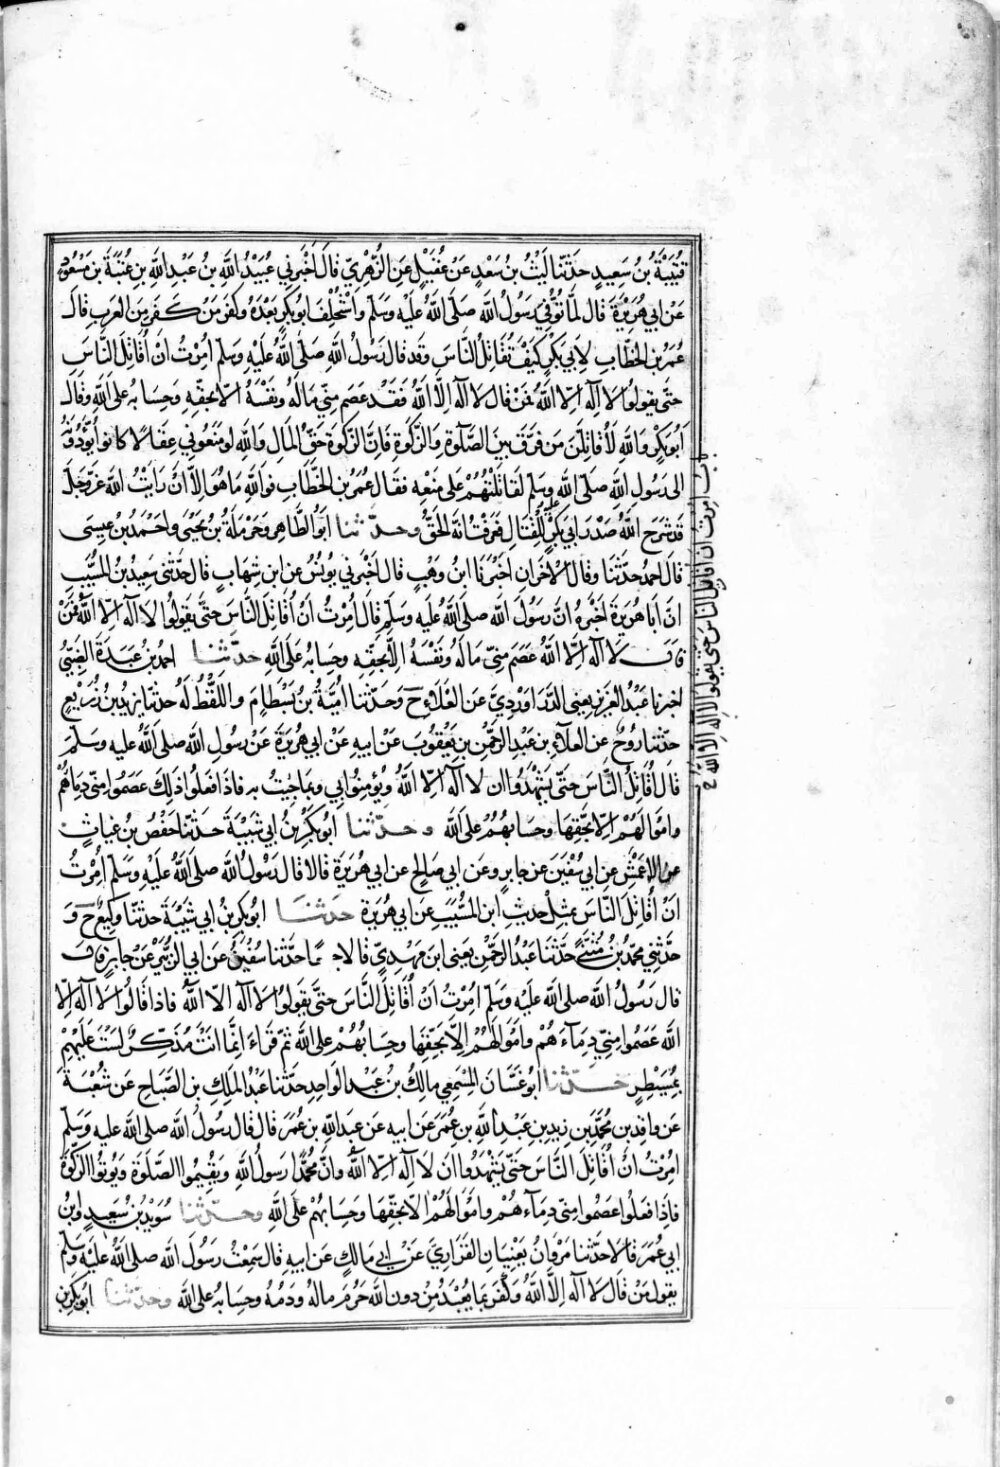 قتيبة بن سعيد حدثنا ليث بن سعد عن عقيل عن الزهري قال اخبرني عبيد الله بن عبد الله بن عتبة بن مسعود
عن ابي هريرة قال لما توفي رسول الله صلى الله عليه وسلم واستخلف ابو بكر بعده وكفر من كفر من العرب قال
عمر بن الخطاب لابي بكر كيف تقاتل الناس وقد قال رسول الله صلى الله عليه وسلم امرت ان اقاتل الناس
حتى يقولوا لا اله الا الله فمن قال لا اله الا الله فقد عصم مني ماله ونفسه الا بحقه وحسابه على الله وقال
ابو بكر والله لأقاتلن من فرق بين الصلوة والزكوة فان الزكوة حق المال والله لو منعوني عقالا كانوا يؤدونه
الى رسول الله صلى الله وسلم لقاتلتهم على منعه فقال عمر بن الخطاب فوالله ما هو الا ان رايت الله عز وجل
قد شرح الله صدر ابي بكر للقتال فعرفت انه الحق وحدثنا ابو الطاهر وحرملة بن يحيى واحمد بن عيسى
قال احمد حدثنا وقال الاخران اخبرنا ابن وهب قال اخبرني يونس عن ابن شهاب قال حدثني سعيد بن المسيب
ان ابا هريرة اخبره ان رسول الله صلى الله عليه وسلم قال امرت ان اقاتل الناس حتى يقولوا لا اله الا الله فمن
قال لا اله الا الله عصم مني ماله ونفسه الا بحقه وحسابه على الله حدثنا احمد بن عبدة الضبي
اخبرنا عبد العزيز يعني الدراوردي عن العلاء ح وحدثنا امية بن بسطام واللفظ له حدثنا يزيد بن زريع
حدثنا روح عن العلاء بن عبد الرحمن بن يعقوب عن ابيه عن ابي هريرة عن رسول الله صلى الله عليه وسلم
قال اقاتل الناس حتى يشهدوا ان لا اله الا الله ويؤمنوا بي وبما جئت به فاذا فعلوا ذلك عصموا مني دماءهم
واموالهم الا بحقها وحسابهم على الله وحدثنا ابو بكر بن ابي شيبة حدثنا حفص بن غياث
عن الاعمش عن ابي سفين عن جابر وعن ابي صالح عن ابي هريرة قالا قال رسول الله صلى الله عليه وسلم امرت
ان اقاتل الناس بمثل حديث ابن المسيب عن ابي هريرة حدثنا ابو بكر بن ابي شيبة حدثنا وكيع ح و
حدثني محمد بن مثنى حدثنا عبد الرحمن يعني ابن مهدي قالا جميعا حدثنا سفين عن ابي الزبير عن جابر قال
قال رسول الله صلى الله عليه وسلم امرت ان اقاتل الناس حتى يقولوا لا اله الا الله فاذا قالوا لا اله الا
الله عصموا مني دماءهم واموالهم الا بحقها وحسابهم على الله ثم قراء انما انت مذكر لست عليهم
بمسيطر حدثنا ابو غسان المسمعي مالك بن عبد الواحد حدثنا عبد الملك بن الصباح عن شعبة
عن واقد بن محمد بن زيد بن عبد الله بن عمر عن ابيه عن عبد الله بن عمر قال قال رسول الله صلى الله عليه وسلم
امرت ان اقاتل الناس حتى يشهدوا ان لا اله الا الله وان محمدا رسول الله ويقيموا الصلوة ويوتوا الزكوة
فاذا فعلوا عصموا مني دماءهم واموالهم الا بحقها وحسابهم على الله وحدثنا سويد بن سعيد وابن
ابي عمر قالا حدثنا مروان يعنيان الفزاري عن ابي مالك عن ابيه قال سمعت رسول الله صلى الله عليه وسلم
يقول من قال لا اله الا الله وكفر بما يعبد من دون الله حرم ماله ودمه وحسابه على الله وحدثنا ابو بكر بن
باب امرت ان اقاتل الناس حتى يقولوا لا اله الا الله